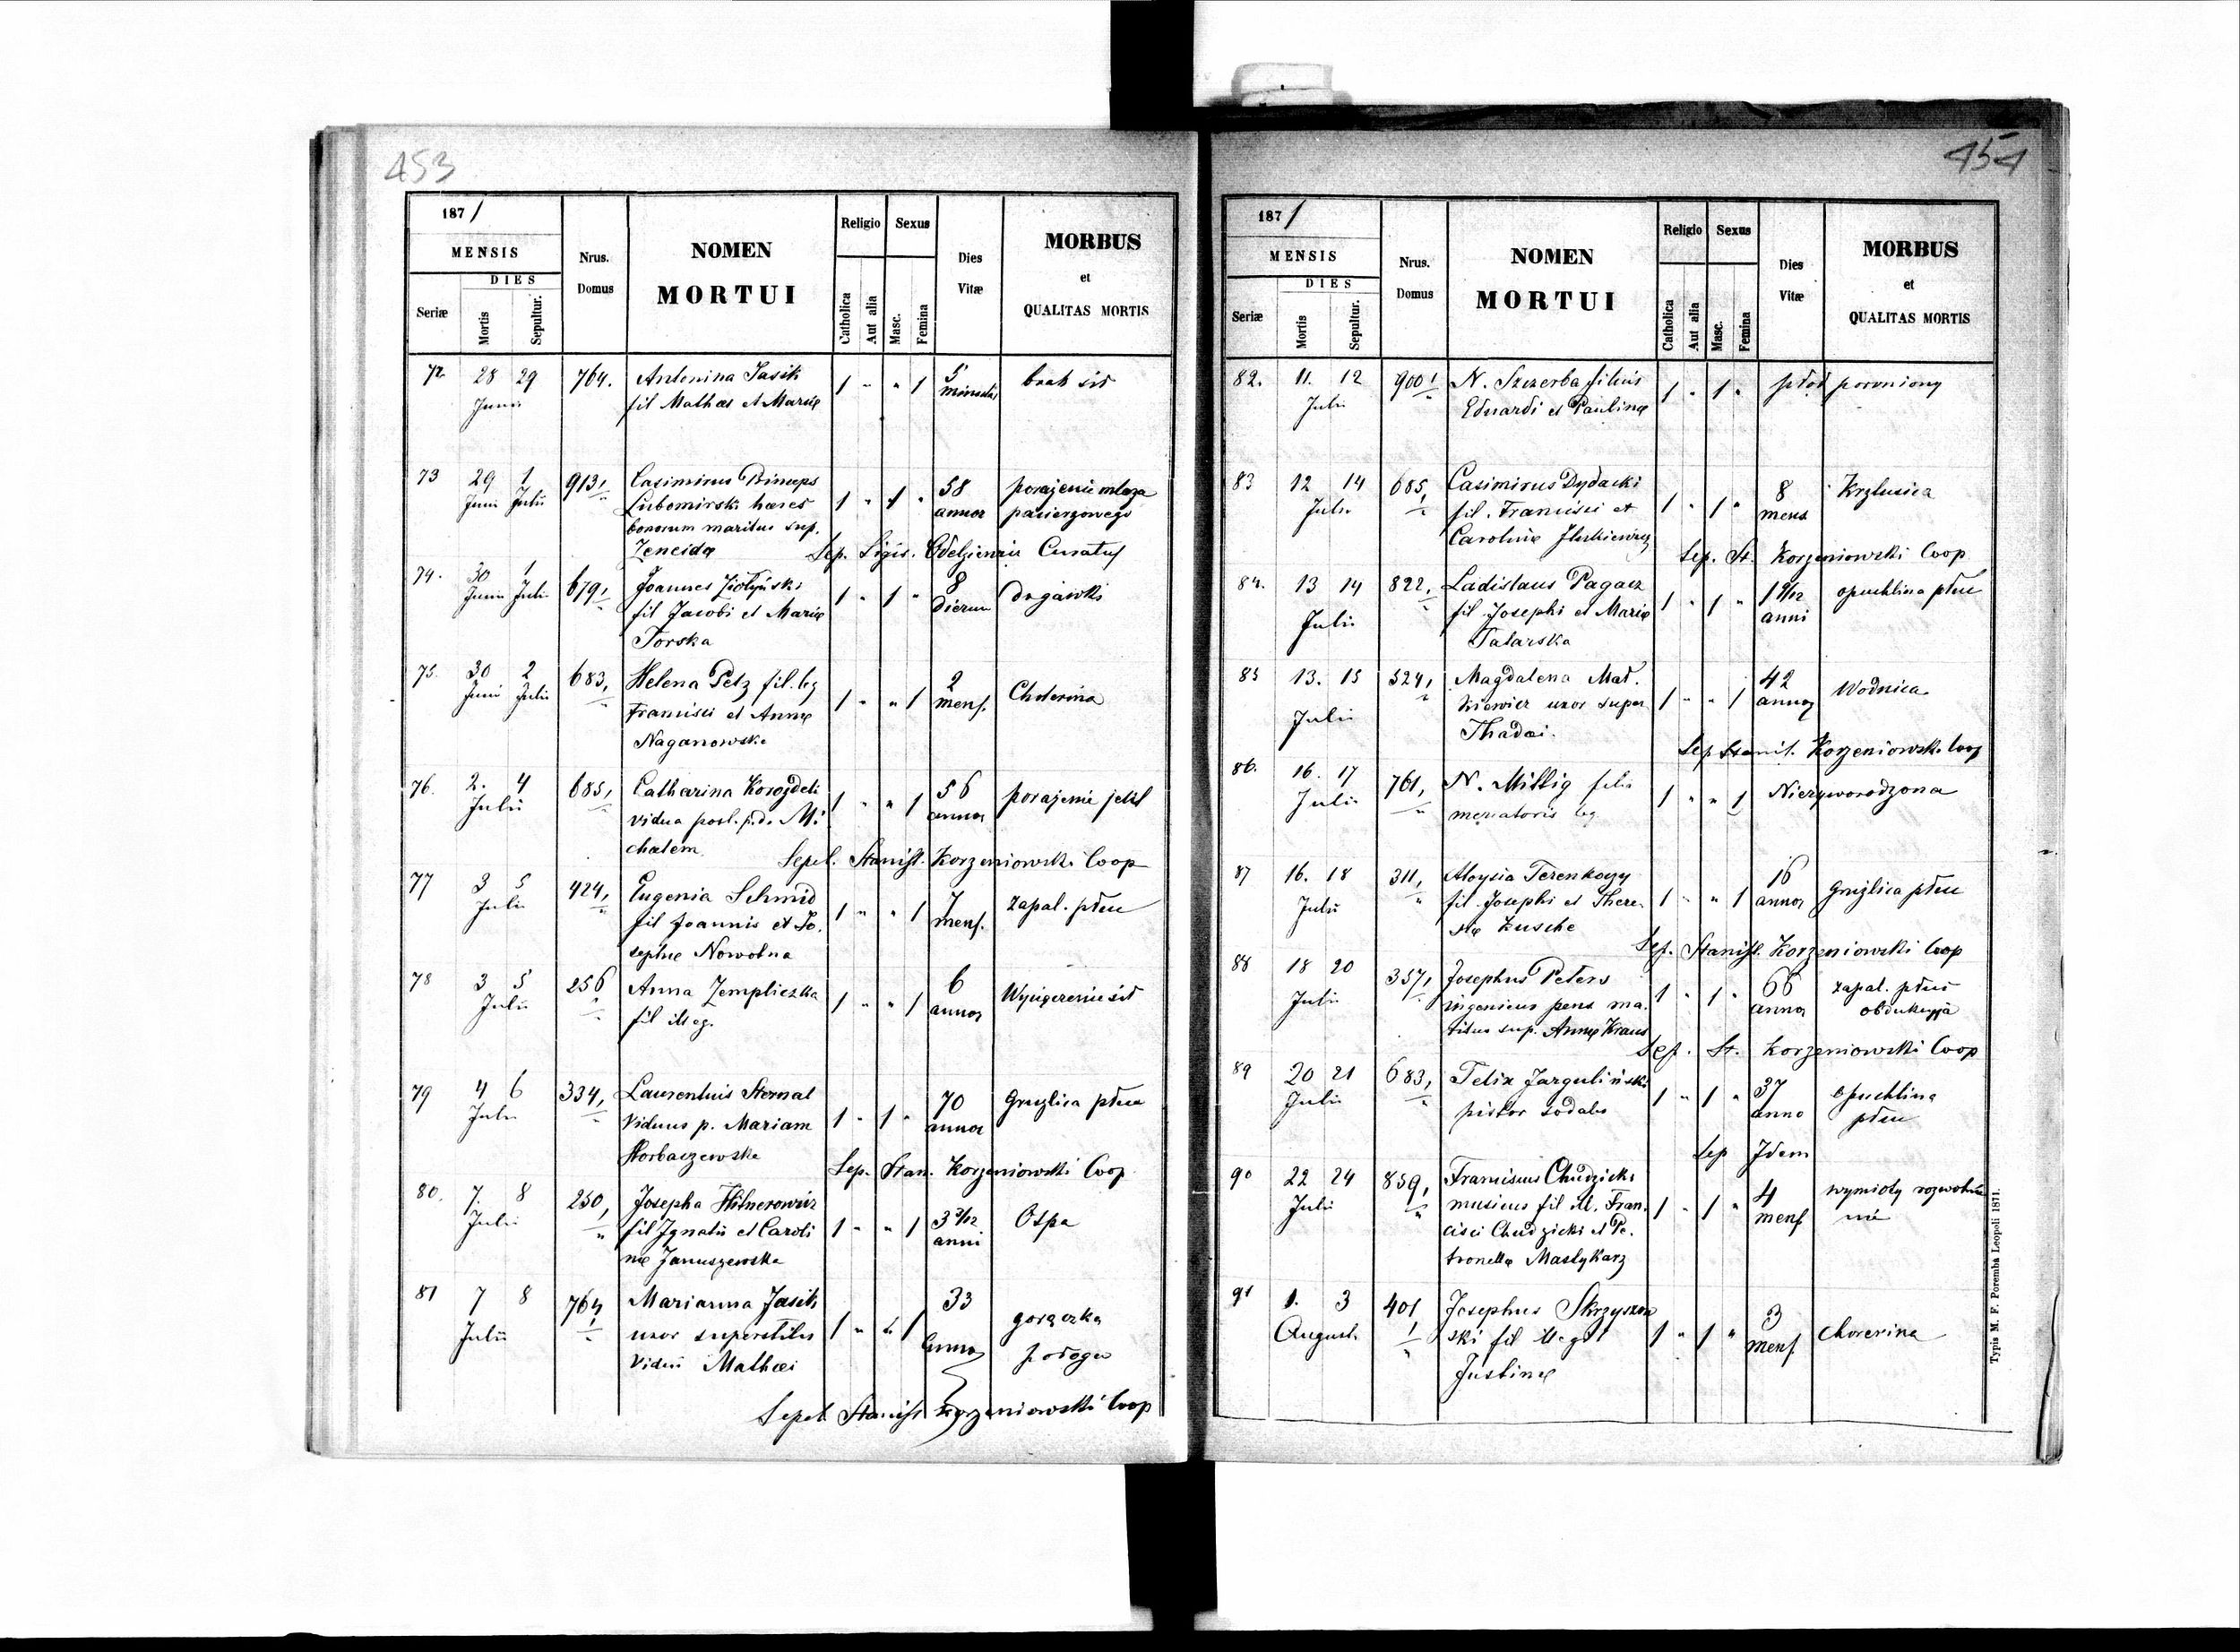 453
187/
MENSIS
DIES
Seriæ Mortis Sepultur.
Nrus. Domus
NOMEN MORTUI
Religio Sexus
Catholica Aut alia Masc. Femina
Dies Vitæ
MORBUS et QUALITAS MORTIS
72. 28 29 764. Antonina Jasik 1 " " 1 5 brak sił
Junii fil Mathæi et Mariæ
73 29 1 913, Casimirus Princeps 58 porażenie mlecza
Junii Julii Lubomirski hæres 1 " 1 " annor pacierzowego
bonorum maritus sup.
Zeneidæ Sep. Curatus
74. 30 1 679, Joannes 8 drgawki
Junii Julii fil Jacobi et Mariæ 1 " 1 " dierum
Torska
75. 30 2 683, Helena Petz fil. leg 2 Cholerina
Junii Julii Francisci et Annæ 1 " " 1 mens.
Naganowska
76. 2. 4 685, Catharina 56 porażenie jelit
Julii vidua post. p. d. Mi 1 " " 1 annor
chalem Sepel. Stanisl. Korzeniowski Coop
77 3 5 424, Eugenia Schmid 7 zapal. płuc
Julii fil Joannis et Jo. 1 " " 1 mens.
sephæ Nowotna
78 3 5 256 Anna Zempliczka 6
Julii fil illeg. 1 " " 1 annor
79 4 6 334, Laurentius Sternal 70 Gruzlica płuc
Julii Viduus p. Mariam 1 " 1 " annor
Horbaczewska Sep. Stan. Korzeniowski Coop
80. 7. 8 250, Josepha Hitnerowicz 3 3/12 Ospa
Julii fil Ignatii et Caroli 1 " " 1 anni
næ Januszewska
81 7 8 764, Marianna Jasik 33 gorączka
Julii uxor superstitis 1 " " 1 annor połogu
vidui Mathæi
Sepel Stanisl Korzeniowski Coop
454
187/
MENSIS
DIES
Seriæ Mortis Sepultur.
Nrus. Domus
NOMEN MORTUI
Religio Sexus
Catholica Aut alia Masc. Femina
Dies Vitæ
MORBUS et QUALITAS MORTIS
82. 11. 12 900 N. Szczerba filius 1 " 1 " płod poroniony
Julii Eduardi et Paulinæ
83 12 14 685, Casimirus Dydacki 8 Krztusica
Julii fil. Francisci et 1 " 1 " mens
Carolinæ
Sep. St. Korzeniowski Coop
84. 13 14 822, Ladislaus Pagacz 1 11/12 opuchlina płuc
Julii fil Josephi et Mariæ 1 " 1 " anni
Tatarska
85 13. 15 524, Magdalena Mat. 42 Wodnica
Julii kiewicz uxor super 1 " " 1 annor
Thadæi.
Sep Stanis. Korzeniowski Coop
86. 16. 17 761, N. Millig filia 1 " " 1 Nieżyworodzona
Julii mercatoris leg
87 16. 18 311, Aloysia Terenkoczy 16 Gruźlica płuc
Julii fil. Josephi et There. 1 " " 1 annor
siæ Kusche
Sep. Stanisl. Korzeniowski Coop
88 18 20 357, Josephus Peters 66 zapal. płuc
Julii ingenieus pens ma. 1 " 1 " annor obdukcyja
ritus sup. Annæ Kraus
Sep. St. Korzeniowski Coop
89 20 21 683, Felix Jarguliński 37 opuchlina
Julii pistor sodalis 1 " 1 " anno płuc
Sep Idem
90 22 24 859, Franciscus Chudzicki 4 wymioty rozwolnie
Julii musicus fil ill. Fran. 1 " 1 " mens nie
cisci Chudzicki et Pe.
tronellæ Mastykarz
91 1. 3 401 Josephus Skrzyszow 3 cholerina
August. ski fil illegit 1 " 1 " mens.
Justinæ
Typis M. F. Poremba Leopoli 1871.